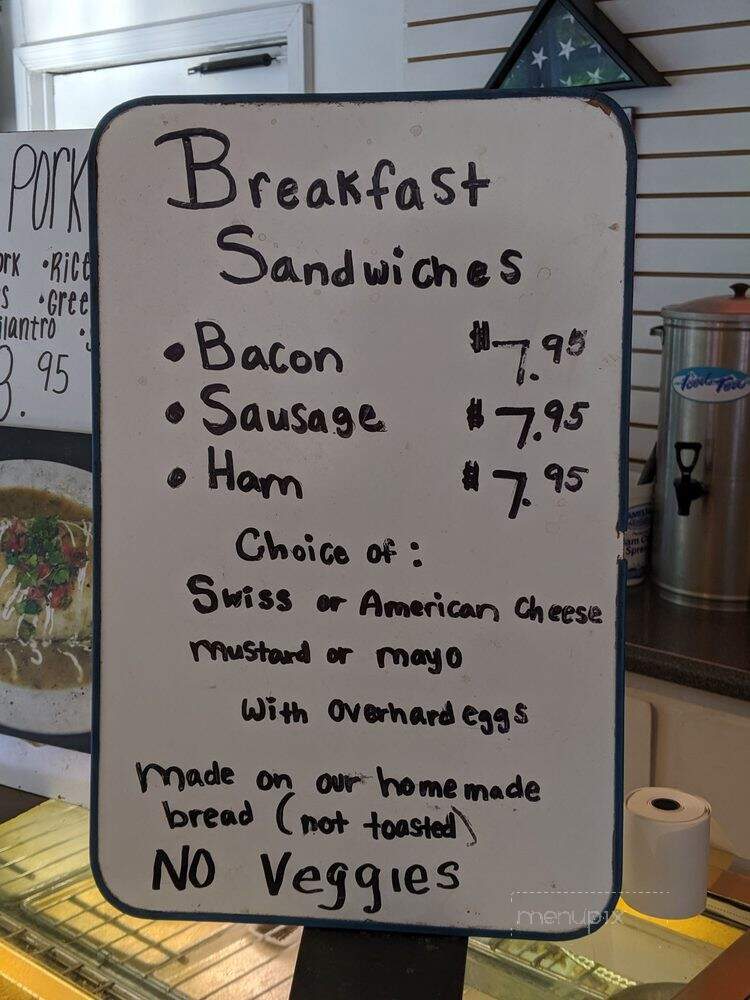 Breakfast
Sandwiches
• Bacon $7.95
• Sausage $7.95
• Ham $7.95
Choice of:
Swiss or American cheese
mustard or mayo
with overhard eggs
made on our homemade
bread (not toasted)
NO Veggies
PORK
• Rice
ilantro
.95
menupix